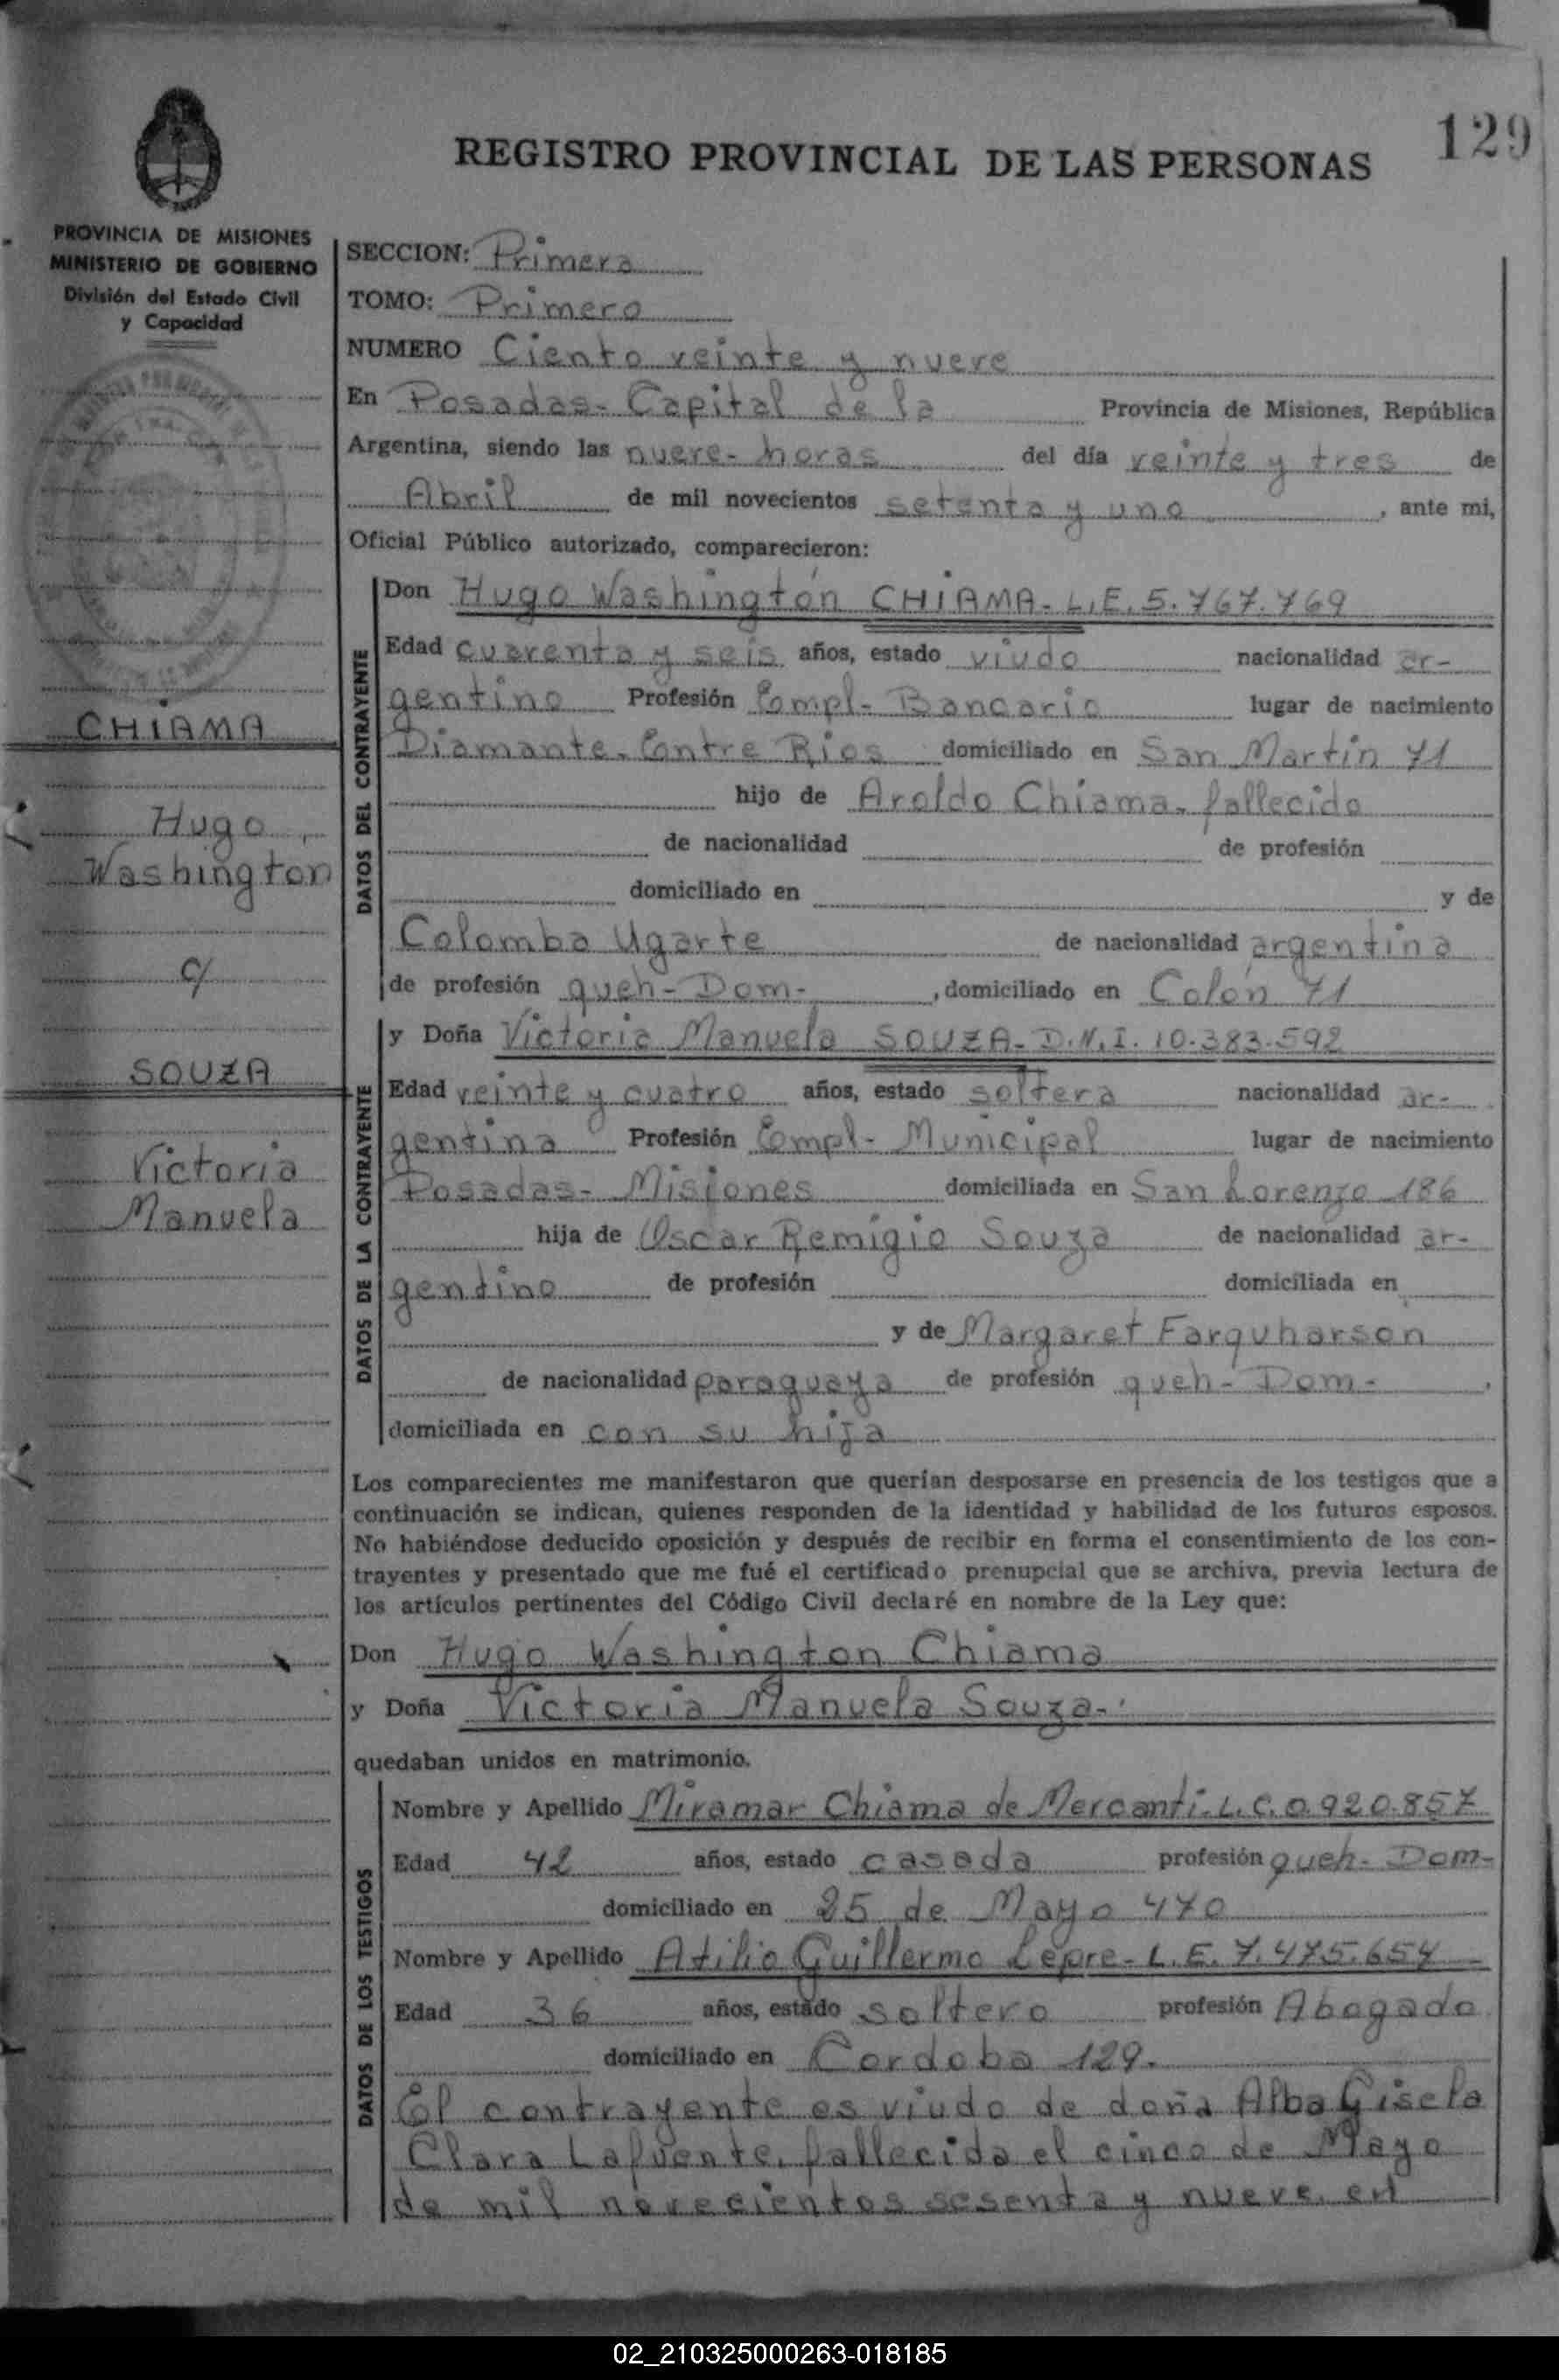 129
REGISTRO PROVINCIAL DE LAS PERSONAS
PROVINCIA DE MISIONES
MINISTERIO DE GOBIERNO
División del Estado Civil
y Capacidad
CHIAMA
Hugo
Washington
c/
SOUZA
Victoria
Manuela
SECCION: Primera
TOMO: Primero
NUMERO Ciento veinte y nueve
En Posadas- Capital de la Provincia de Misiones, República
Argentina, siendo las nueve- horas del día veinte y tres de
Abril de mil novecientos setenta y uno, ante mi,
Oficial Público autorizado, comparecieron:
DATOS DEL CONTRAYENTE
Don Hugo Washington CHIAMA- L.E. 5.767.769
Edad cuarenta y seis años, estado viudo nacionalidad ar-
gentino Profesión Empl- Bancario lugar de nacimiento
Diamante- Entre Rios domiciliado en San Martin 71
hijo de Aroldo Chiama- fallecido
de nacionalidad de profesión
domiciliado en y de
Colomba Ugarte de nacionalidad argentina
de profesión queh- Dom-, domiciliado en Colón 71
DATOS DE LA CONTRAYENTE
y Doña Victoria Manuela SOUZA- D.N.I. 10.383.592
Edad veinte y cuatro años, estado soltera nacionalidad ar-
gentina Profesión Empl- Municipal lugar de nacimiento
Posadas- Misiones domiciliada en San Lorenzo 186
hija de Oscar Remigio Souza de nacionalidad ar-
gentino de profesión domiciliada en
y de Margaret Farquharson
de nacionalidad paraguaya de profesión queh- Dom-,
domiciliada en con su hija
Los comparecientes me manifestaron que querían desposarse en presencia de los testigos que a
continuación se indican, quienes responden de la identidad y habilidad de los futuros esposos.
No habiéndose deducido oposición y después de recibir en forma el consentimiento de los con-
trayentes y presentado que me fué el certificado prenupcial que se archiva, previa lectura de
los artículos pertinentes del Código Civil declaré en nombre de la Ley que:
Don Hugo Washington Chiama
y Doña Victoria Manuela Souza-
quedaban unidos en matrimonio.
DATOS DE LOS TESTIGOS
Nombre y Apellido Miramar Chiama de Mercanti- L.C. 0.920.857
Edad 42 años, estado casada profesión queh- Dom-
domiciliado en 25 de Mayo 470
Nombre y Apellido Atilio Guillermo Lepre- L.E. 7.475.654
Edad 36 años, estado soltero profesión Abogado
domiciliado en Cordoba 129.
El contrayente es viudo de doña Alba Gisela
Clara Lafuente, fallecida el cinco de Mayo
de mil novecientos sesenta y nueve, en
02_210325000263-018185